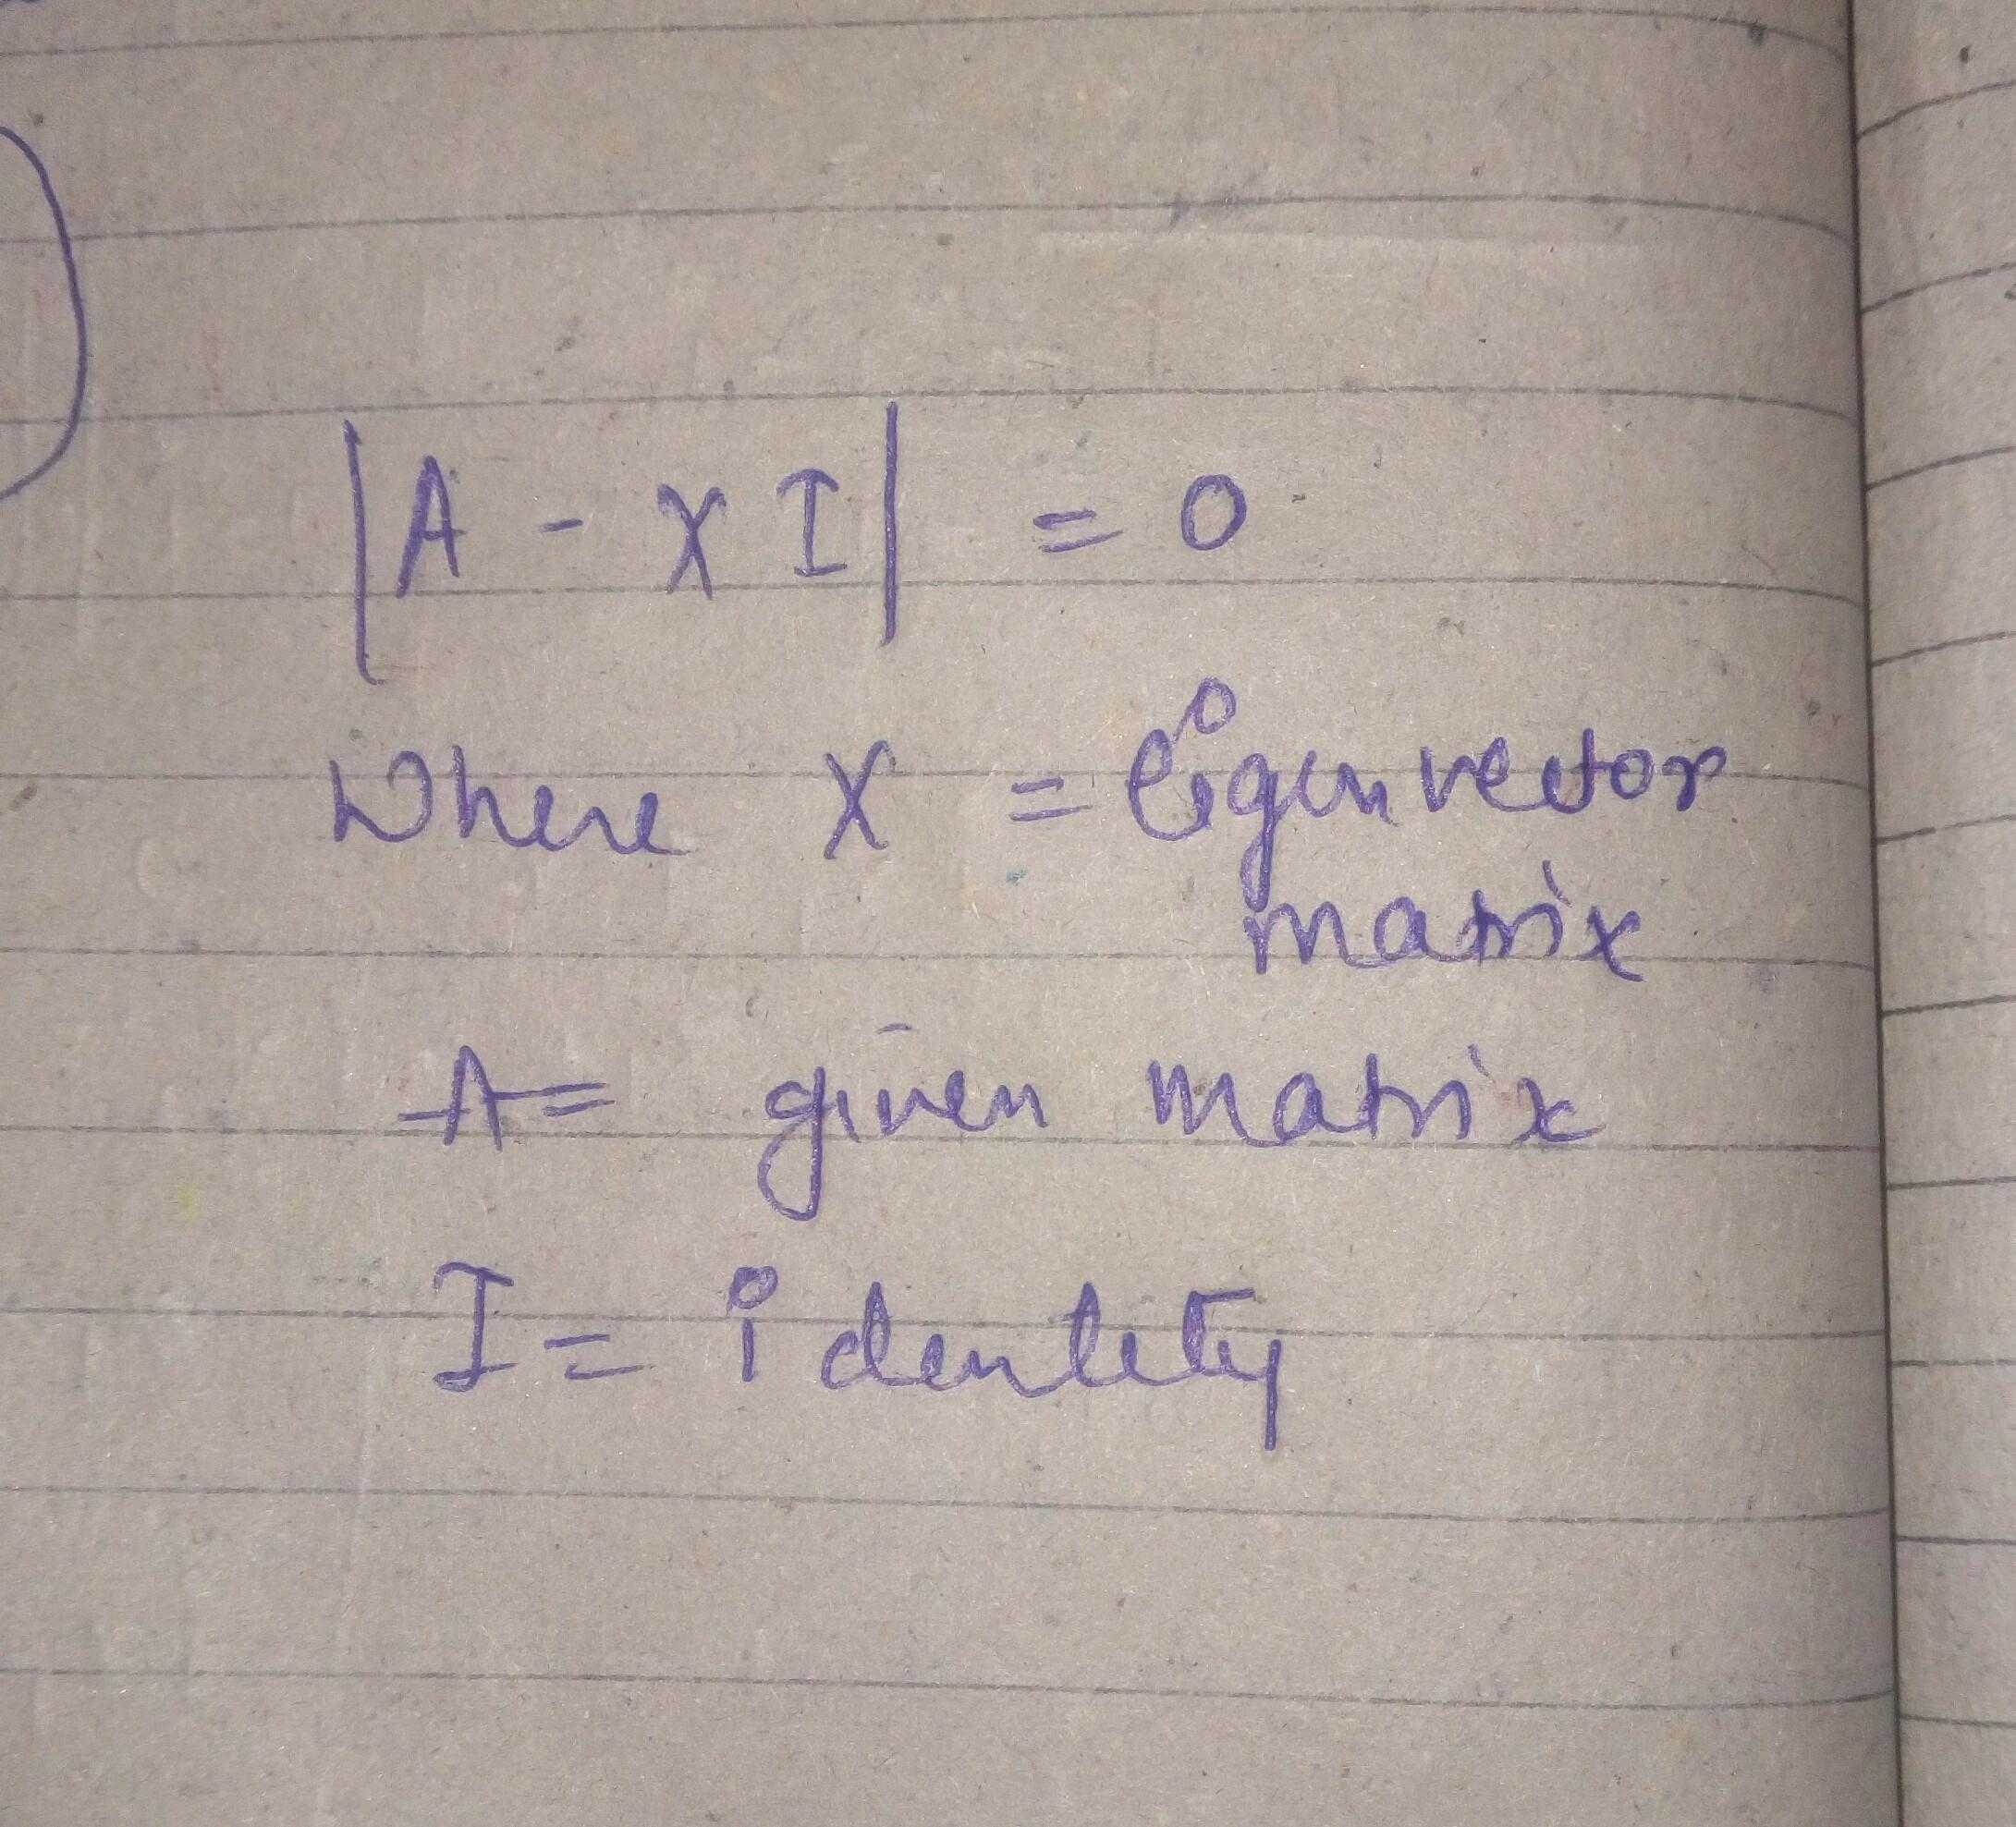 |A - X I| = 0
where X = Eigen vector
matrix
A = given matrix
I = identity